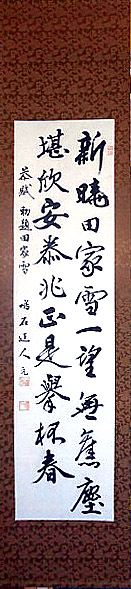 新晴田家雪一望無舊塵
堪欣安泰兆正是擧杯春
恭賦 初趣田家雪
鳴石道人